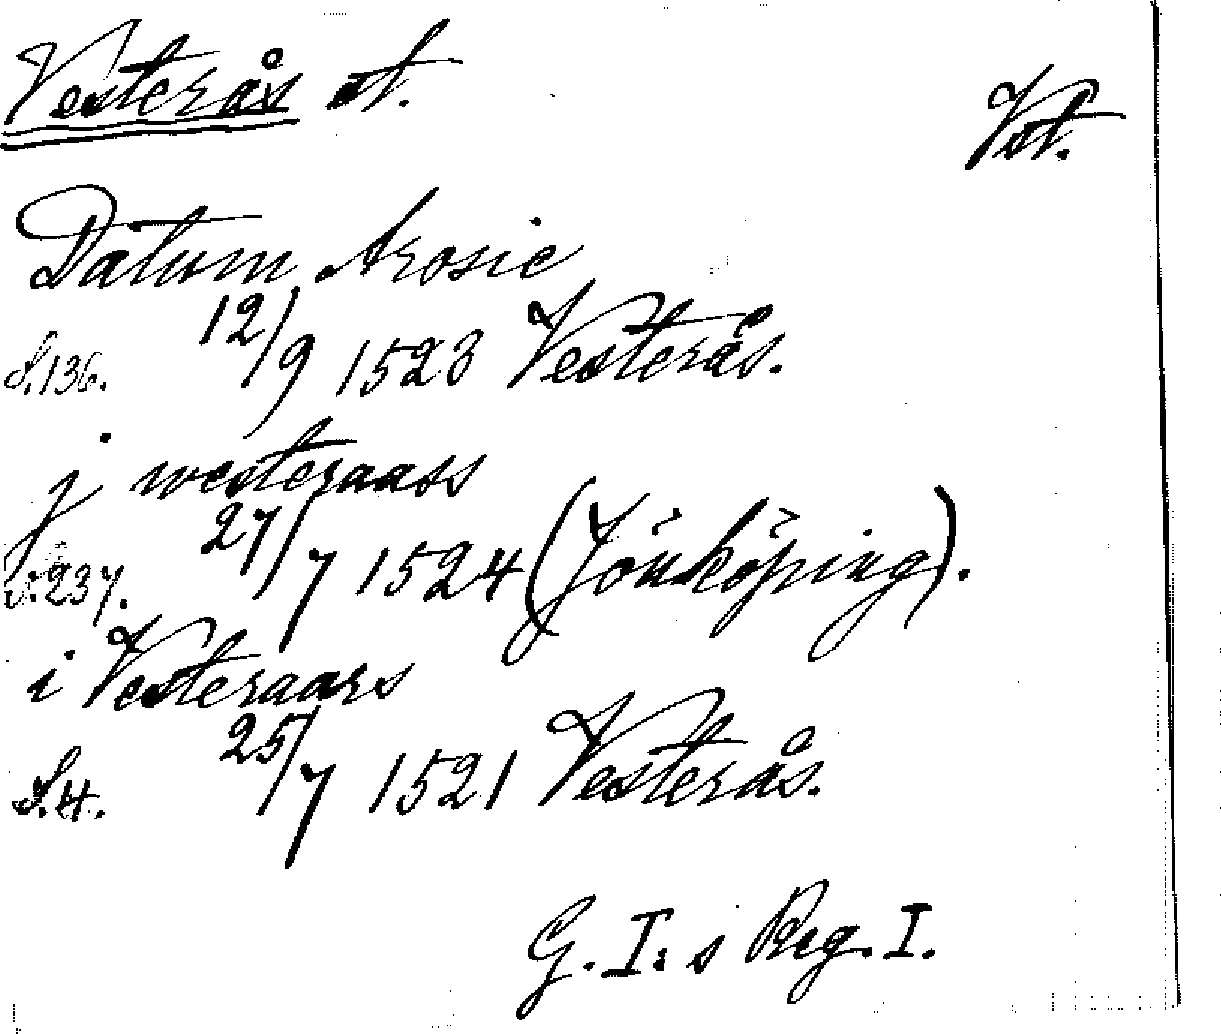 Vesterås st. Vst.
Datum Arosie
S. 136. 12/9 1523 Vesterås.
j westeraass
S. 237. 27/7 1524 (Jönköping).
i Vesteraars
S. 4. 25/7 1521 Vesterås.
G. I: s Reg. I.